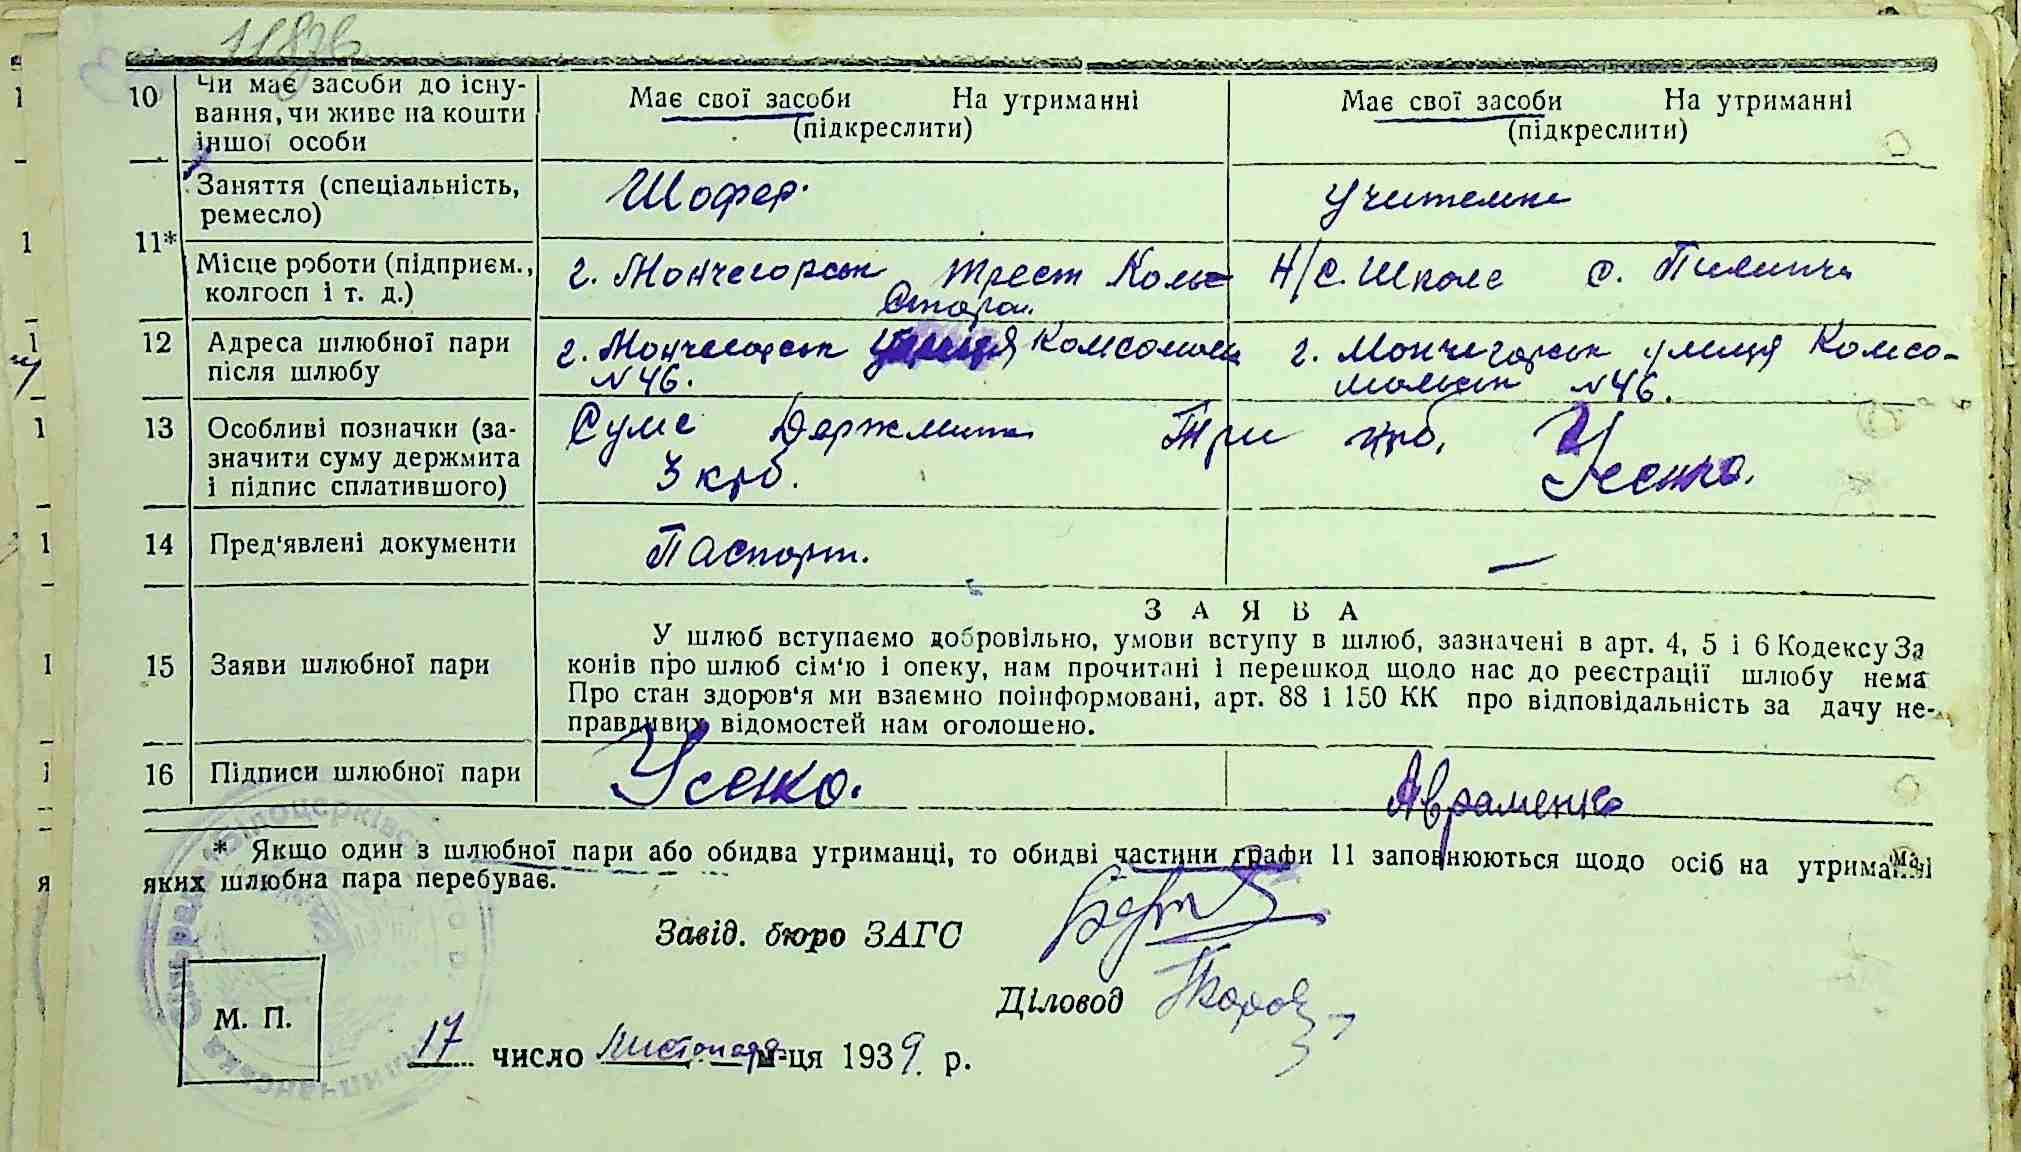 10 Чи має засоби до існування, чи живе на кошти іншої особи
Має свої засоби На утриманні
(підкреслити)
Має свої засоби На утриманні
(підкреслити)
11*
Заняття (спеціальність,
ремесло)
Шофер.
Учителька
Місце роботи (підприєм.,
колгосп і т. д.)
г. Мончегорськ Трест Коль-
Н/С. Школа с. Пилипча
12 Адреса шлюбної пари
після шлюбу
г. Мончегорськ улиця Комсомольськ
№ 46.
г. Мончегорськ улиця Комсо-
мольськ № 46.
13 Особливі позначки (за-
значити суму держмита
і підпис сплатившого)
Сума Держмита Три крб.
3 крб.
Усенко.
14 Пред'явлені документи
Паспорт.
—
15 Заяви шлюбної пари
ЗАЯВА
У шлюб вступаємо добровільно, умови вступу в шлюб, зазначені в арт. 4, 5 і 6 Кодексу За
конів про шлюб сім'ю і опеку, нам прочитані і перешкод щодо нас до реєстрації шлюбу нема
Про стан здоров'я ми взаємно поінформовані, арт. 88 і 150 КК про відповідальність за дачу не-
правдивих відомостей нам оголошено.
16 Підписи шлюбної пари
Усенко.
Авраменко
* Якщо один з шлюбної пари або обидва утриманці, то обидві частини графи 11 заповнюються щодо осіб на утриманні
яких шлюбна пара перебуває.
Завід. бюро ЗАГС
Діловод
М. П.
17 число Листопада м-ця 1939 р.